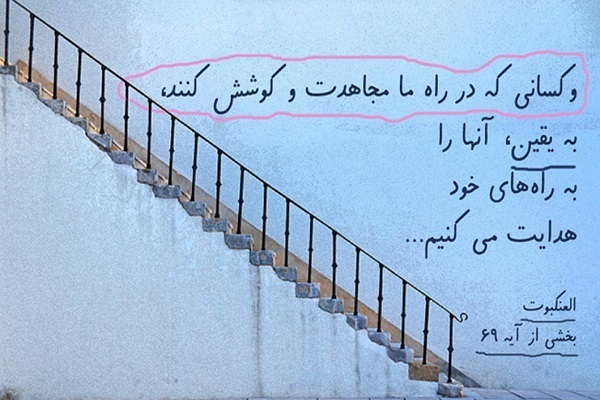 و کسانی که در راه ما مجاهدت و کوشش کنند،
به یقین، آنها را
به راه‌های خود
هدایت می کنیم...
العنکبوت
بخشی از آیه ۶۹